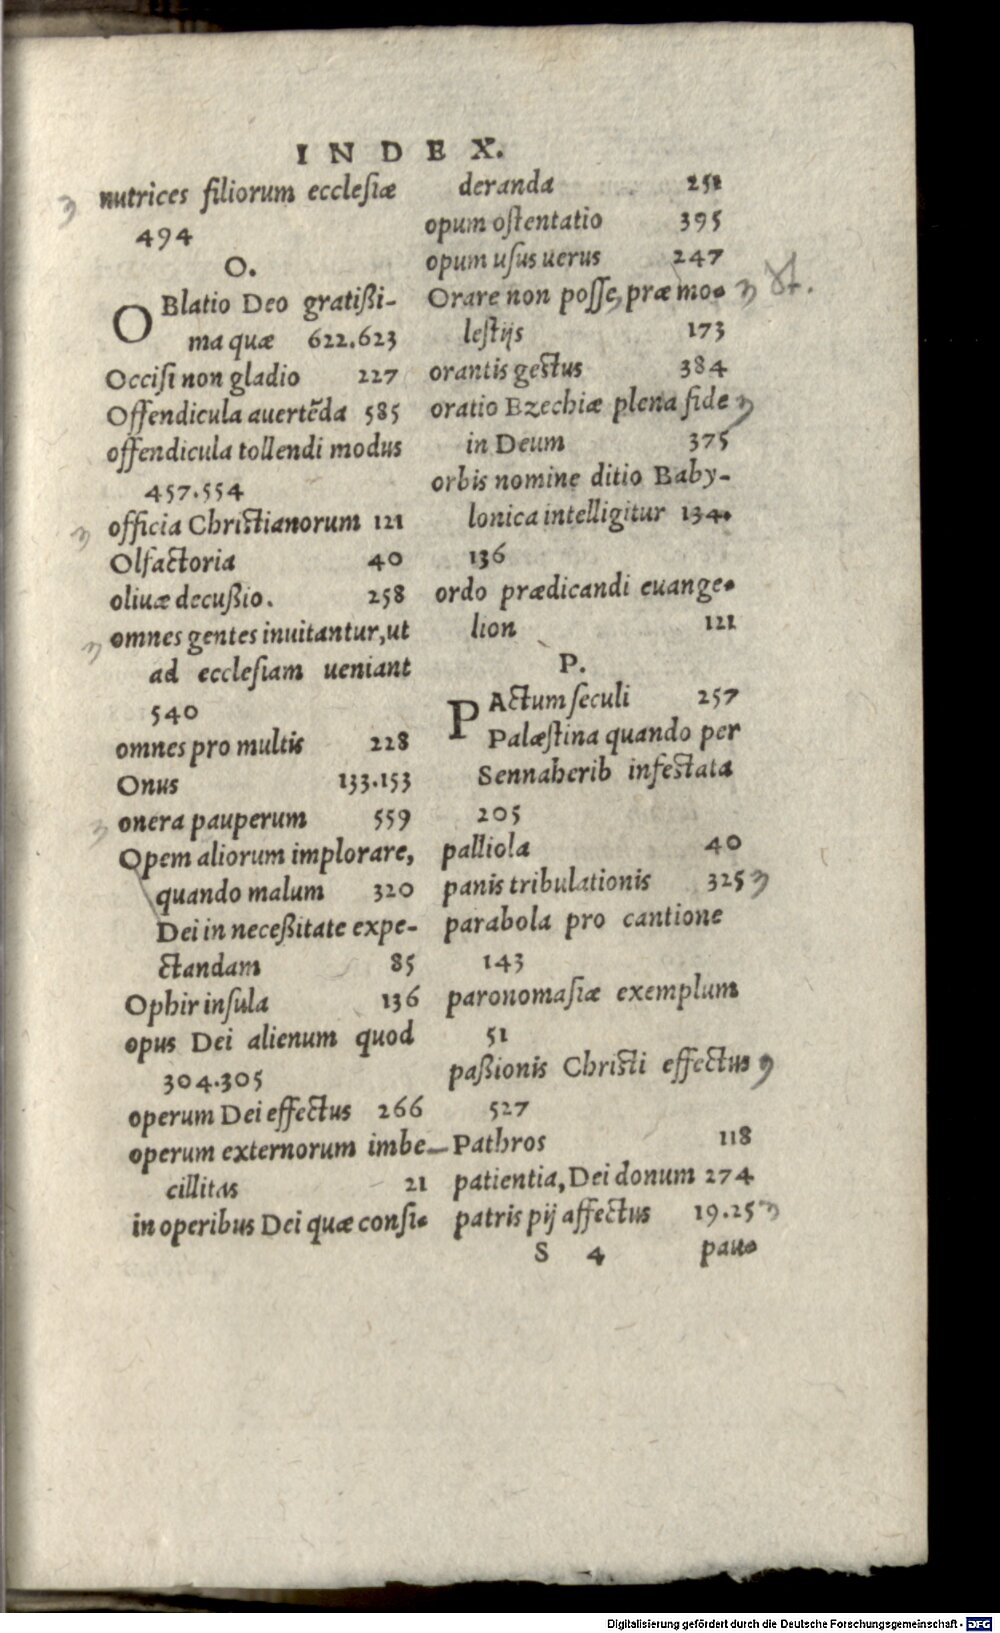 INDEX.
nutrices filiorum ecclesiæ
494
O.
OBlatio Deo gratißi-
ma quæ 622.623
Occisi non gladio 227
Offendicula auertēda 585
offendicula tollendi modus
457.554
officia Christianorum 121
Olfactoria 40
oliuæ decußio. 258
omnes gentes inuitantur, ut
ad ecclesiam ueniant
540
omnes pro multis 228
Onus 133.153
onera pauperum 559
Opem aliorum implorare,
quando malum 320
Dei in neceßitate expe-
ctandam 85
Ophir insula 136
opus Dei alienum quod
304.305
operum Dei effectus 266
operum externorum imbe-
cillitas 21
in operibus Dei quæ consi-
deranda 251
opum ostentatio 395
opum usus uerus 247
Orare non posse, præ mo-
lestijs 173
orantis gestus 384
oratio Ezechiæ plena fide
in Deum 375
orbis nomine ditio Baby-
lonica intelligitur 134.
136
ordo prædicandi euange-
lion 121
P.
PActum seculi 257
Palæstina quando per
Sennaherib infestata
205
palliola 40
panis tribulationis 325
parabola pro cantione
143
paronomasiæ exemplum
51
paßionis Christi effectus
527
Pathros 118
patientia, Dei donum 274
patris pij affectus 19.25
S 4 pau-
Digitalisierung gefördert durch die Deutsche Forschungsgemeinschaft - DFG